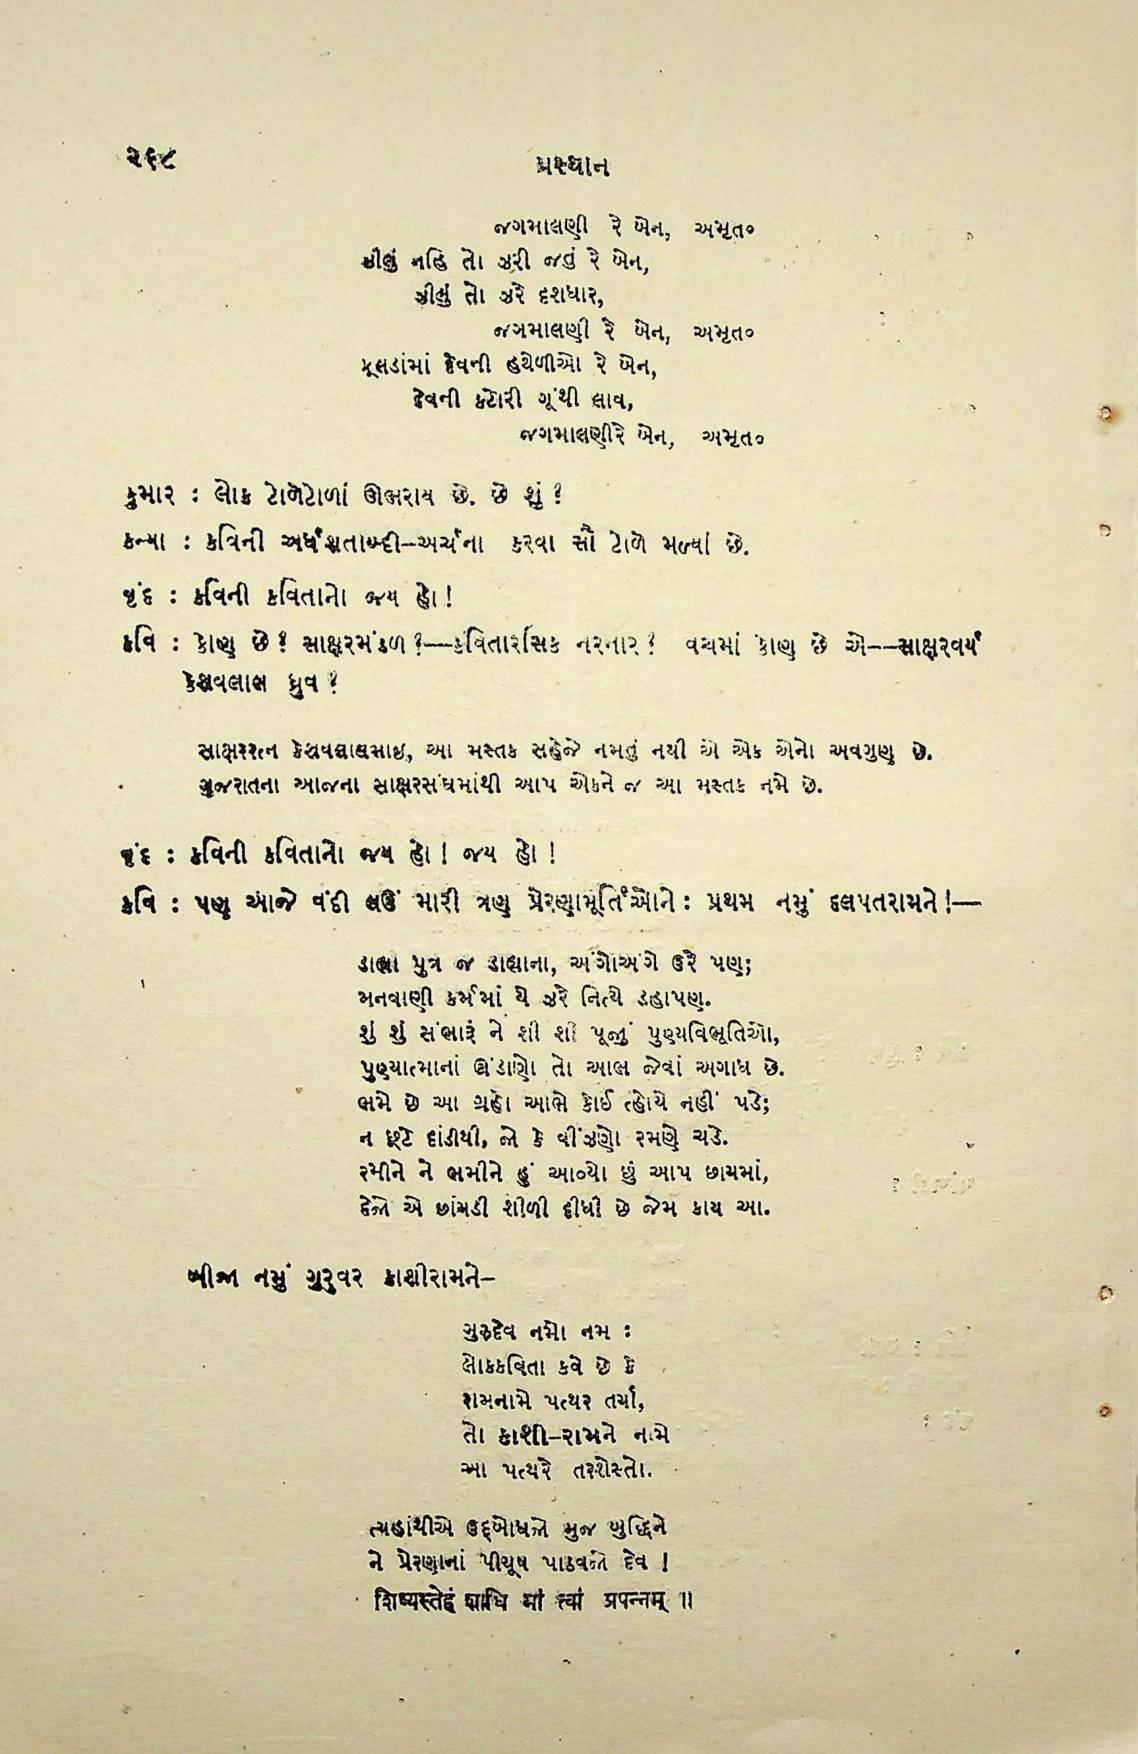 ૨૬૮
પ્રસ્થાન
જગમાલણી રે બેન, અમૃત૦
ઝીલું નહિ તો ઝરી જતું રે બેન,
ઝીલું તો ઝરે દશધાર,
જગમાલણી રે બેન, અમૃત૦
ફૂલડાંમાં દેવની હથેળીઓ રે બેન,
દેવની કટોરી ગૂંથી લાવ,
જગમાલણીરે બેન, અમૃત૦
કુમાર : લોક ટોળેટોળાં ઊભરાય છે. છે શું ?
કન્યા : કવિની અર્ધશતાબ્દી–અર્ચના કરવા સૌ ટોળે મળ્યાં છે.
વૃંદ : કવિની કવિતાનો જય હો !
કવિ : કોણ છે ? સાક્ષરમંડળ ?—કવિતારસિક નરનાર ? વચમાં કોણ છે એ——સાક્ષરવર્ય
કેશવલાલ ધ્રુવ ?
સાક્ષરરત્ન કેશવલાલભાઇ, આ મસ્તક સહેજે નમતું નથી એ એક એનો અવગુણ છે.
ગુજરાતના આજના સાક્ષરસંઘમાંથી આપ એકને જ આ મસ્તક નમે છે.
વૃંદ : કવિની કવિતાનો જય હો ! જય હો !
કવિ : પણ આજે વંદી લઉં મારી ત્રણ પ્રેરણામૂર્તિઓને : પ્રથમ નમું દલપતરામને !—
ડાહ્યા પુત્ર જ ડાહ્યાના, અંગોઅંગે ઉરે પણ;
મનવાણી કર્મમાં યે ઝરે નિત્યે ડહાપણ.
શું શું સંભારૂં ને શી શી પૂજું પુણ્યવિભૂતિઓ,
પુણ્યાત્માનાં ઊંડાણો તો આભ જેવાં અગાધ છે.
ભમે છે આ ગ્રહો આભે કોઈ ત્હોયે નહીં પડે;
ન છૂટે દાંડીથી, જો કે વીંઝણો રમણે ચડે.
રમીને ને ભમીને હું આવ્યો છું આપ છાયમાં,
દેજો એ છાંયડી શીળી દીધી છે જેમ કાય આ.
બીજા નમું ગુરુવર કાશીરામને–
ગુરુદેવ નમો નમ :
લોકકવિતા કવે છે કે
રામનામે પત્થર તર્યા,
તો કાશી–રામને નામે
આ પત્થરે તરશેસ્તો.
ત્ય્હાંથીએ ઉદ્‌બોધજો મુજ બુદ્ધિને
ને પ્રેરણાનાં પીયૂષ પાઠવજો દેવ !
शिष्यस्तेहं शाधि मां त्वां प्रपन्नम् ॥